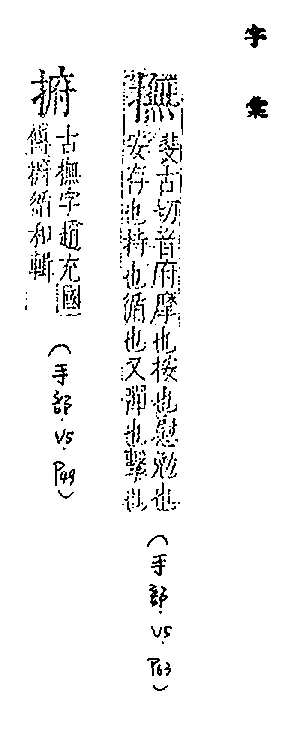 字彙
撫
斐古切音府摩也按也慰勉也
安存也持也循也又彈也擊也
（手部.V5.P63）
㨈
古撫字趙充國
傳㨈循和輯
（手部.V5.P49）